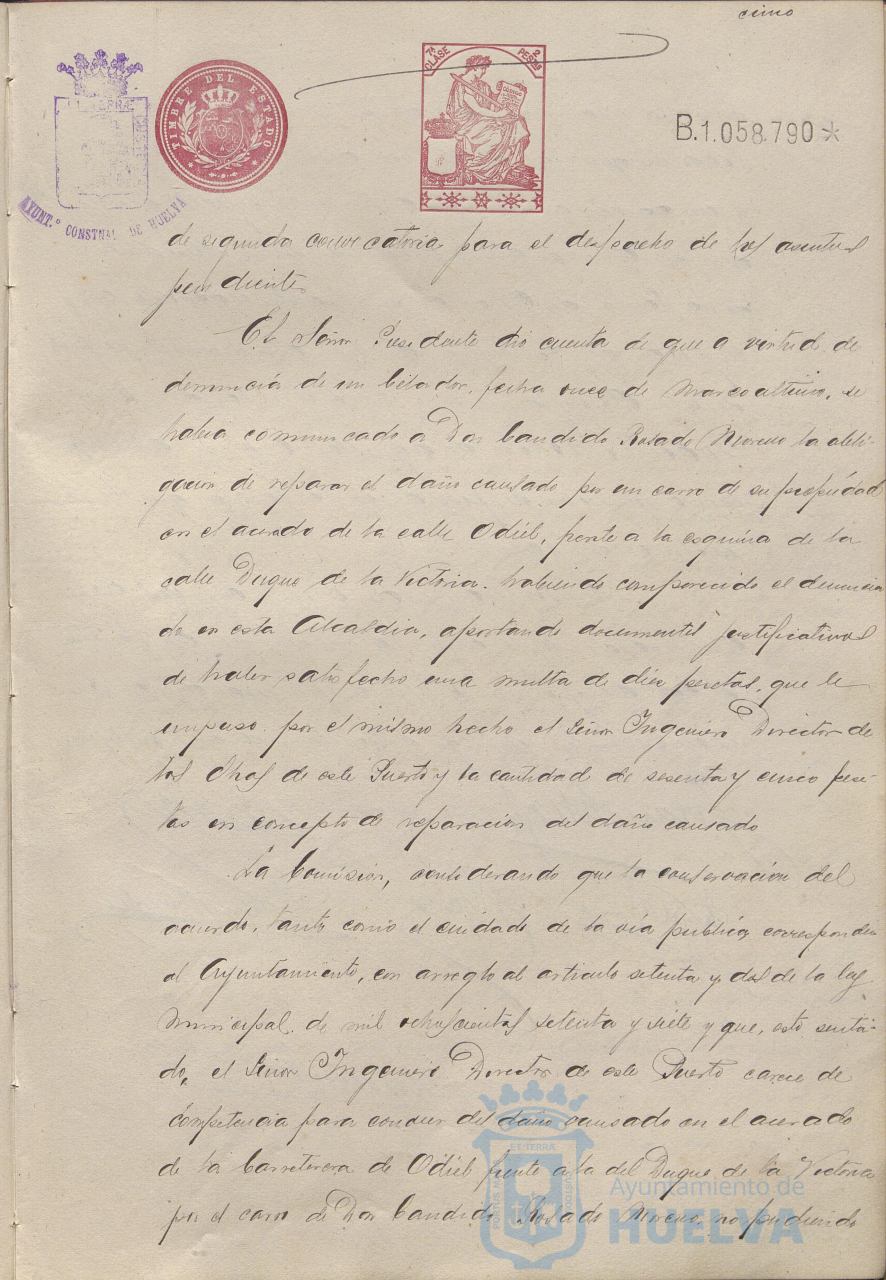 cinco
ET TERRÆ
AYUNT.º CONSTNAL DE HUELVA
TIMBRE DEL ESTADO
7ª CLASE
2 PESAS
CODIGO
B.1.058.790*
de segunda convocatoria para el despacho de los asuntos
pendientes
El Señor Presidente dio cuenta de que a virtud de
denuncia de un celador, fecha once de Marzo último, se
habia comunicado a Don Candido Rosado Moreno la obli-
gación de reparar el daño causado por un carro de su propiedad
en el acerado de la calle Odiel, frente a la esquina de la
calle Duque de la Victoria. habiendo comparecido el denuncia
do en esta Alcaldia, aportando documentos justificativos
de haber satisfecho una multa de diez pesetas, que le
impuso por el mismo hecho el Señor Ingeniero Director de
las Obras de este Puerto y la cantidad de sesenta y cinco pese-
tas en concepto de reparacion del daño causado
La Comisión, considerando que la conservacion del
acerado, tanto como el cuidado de la via publica corresponden
al Ayuntamiento, con arreglo al articulo setenta y dos de la ley
Municipal de mil ochocientos setenta y siete y que, esto senta-
do, el Señor Ingeniero Director de este Puerto carece de
competencia para conocer del daño causado en el acerado
de la Carretera de Odiel frente a la del Duque de la Victoria
por el carro de Don Candido Rosado Moreno, no pudiendo
ET TERRA
Ayuntamiento de
HUELVA